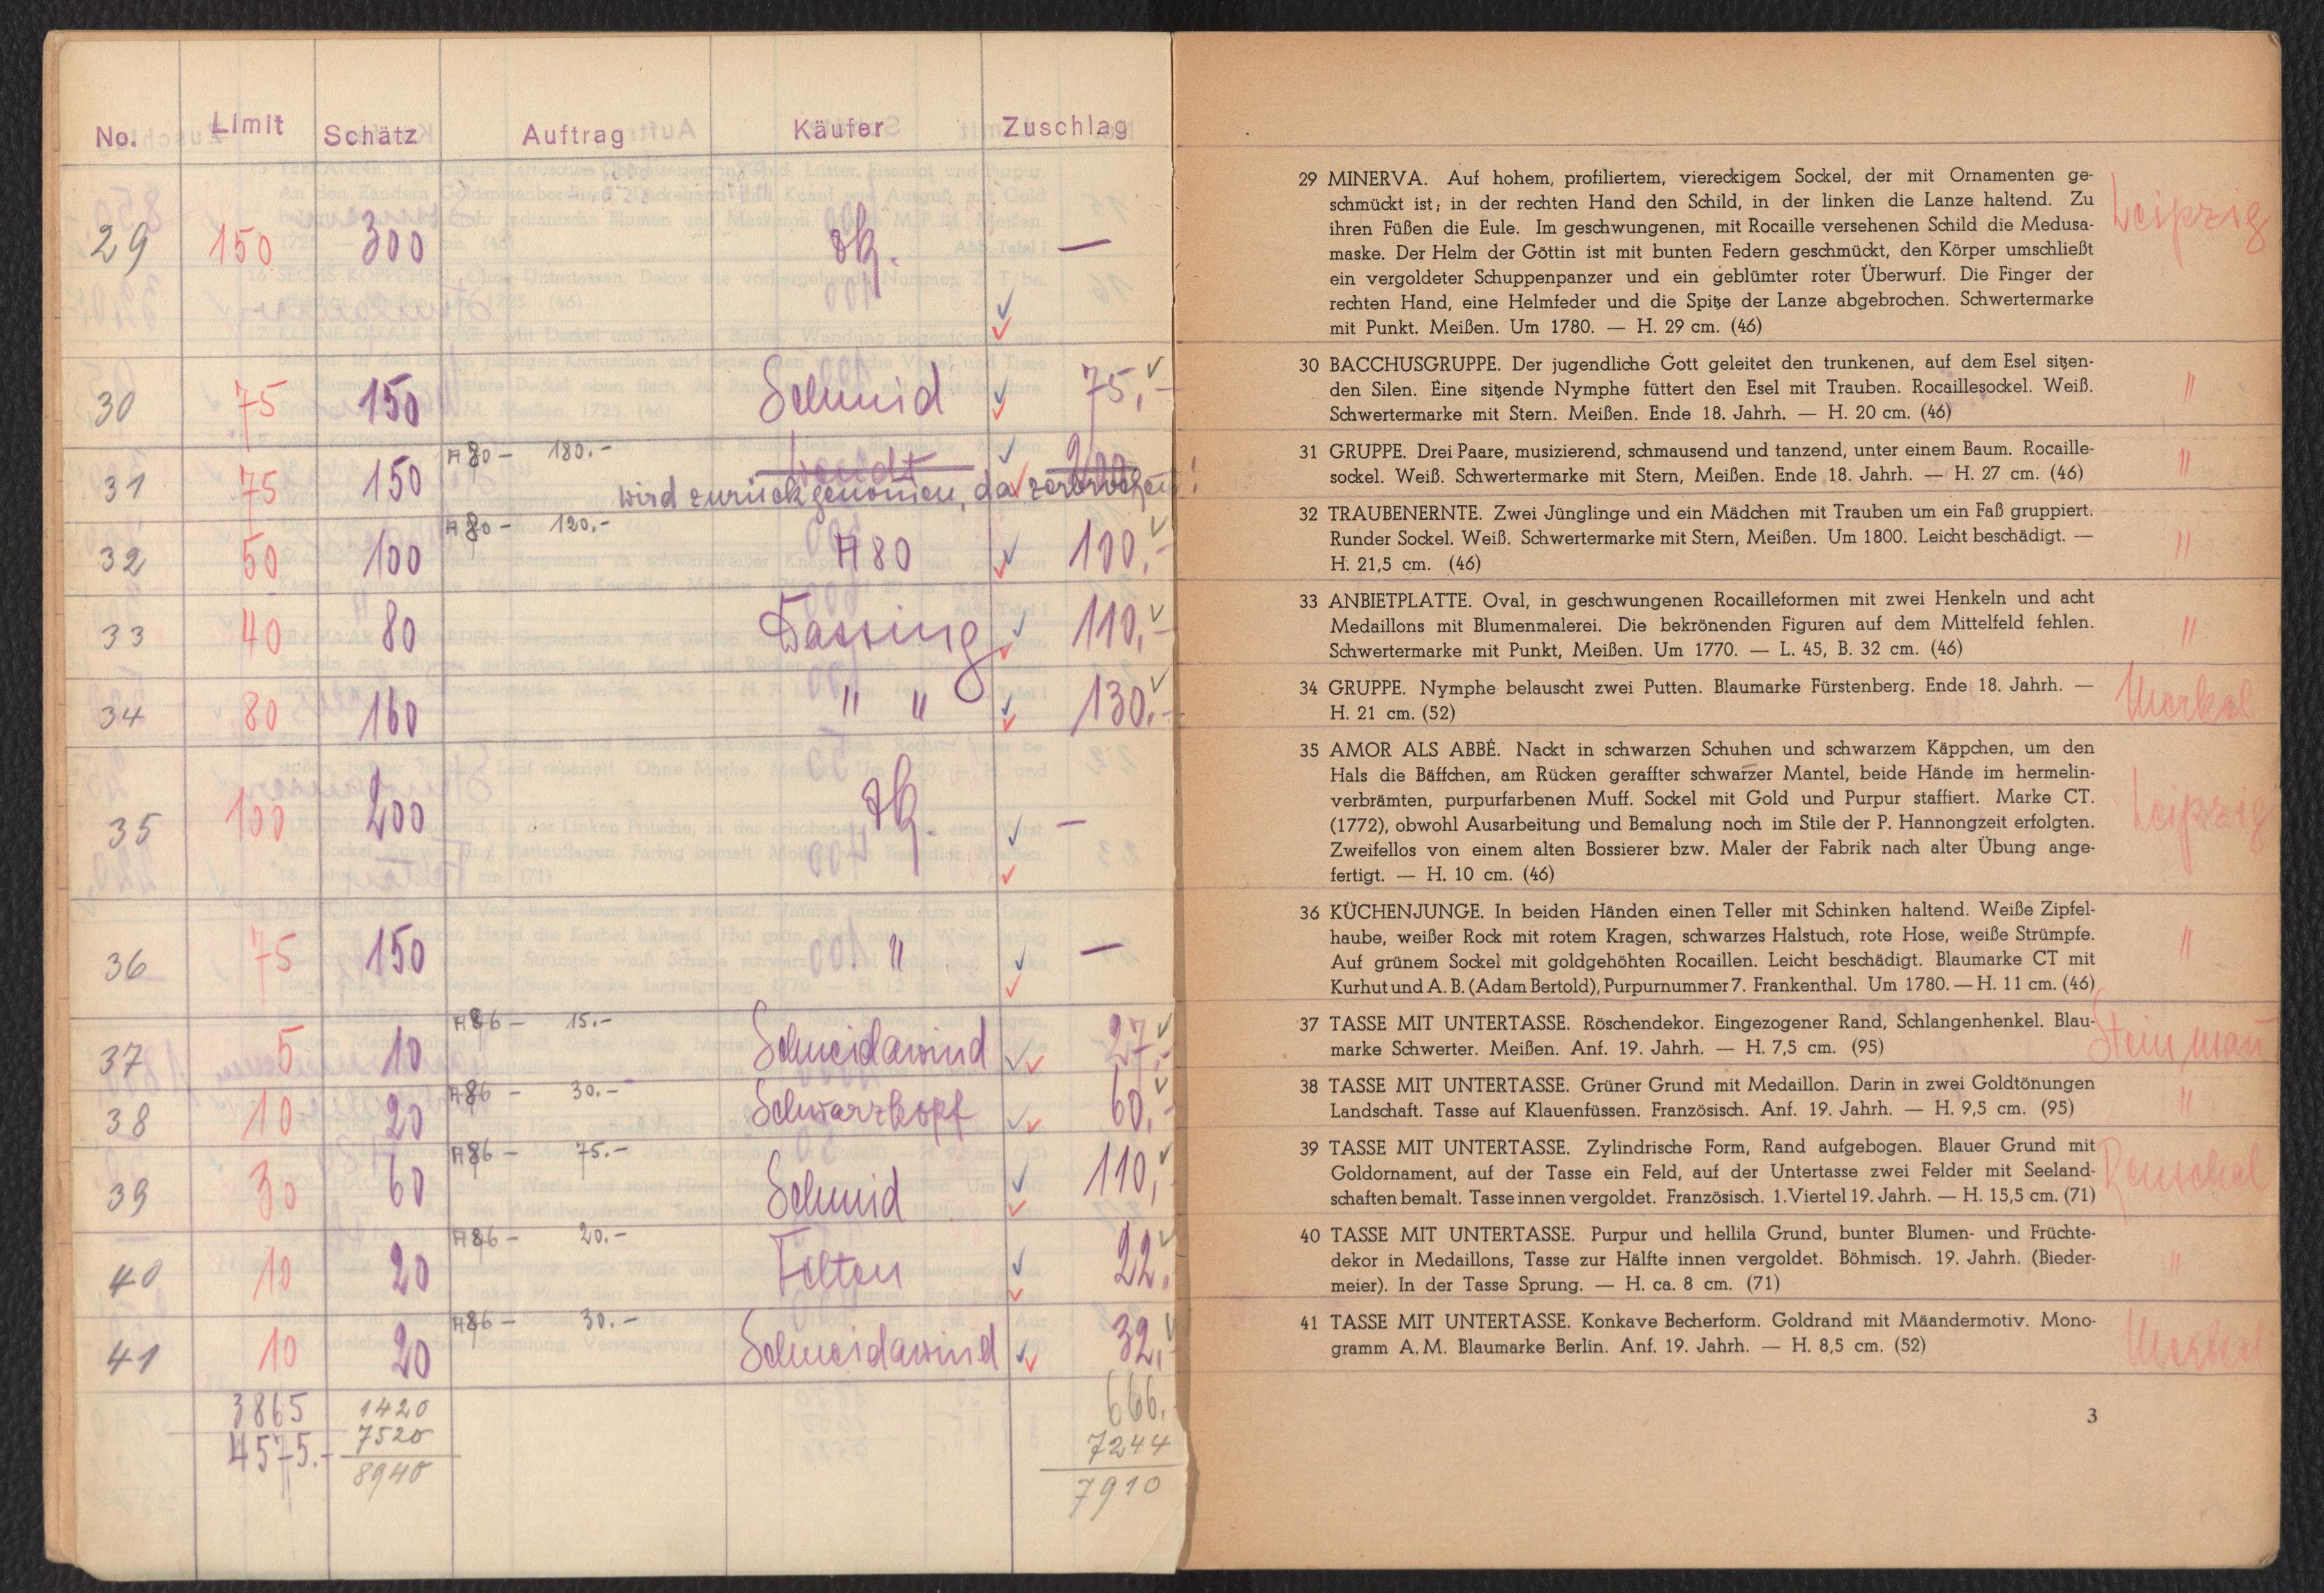 No. Limit Schätz Auftrag Käufer Zuschlag
29 150 300 —
30 75 150 Schmid 75,-
31 75 150 A80 - 180.-
wird zurückgenomen, da zerbrochen!
32 50 100 A80 - 120.- A80 100,-
33 40 80 Dassing 110,-
34 80 160 " " 130.-
35 100 200 —
36 75 150 " —
37 5 10 A86 - 15.- Schneidawind 27,-
38 10 20 A86 - 30.- Schwarzkopf 60,-
39 30 60 A86 - 75.- Schmid 110,-
40 10 20 A86 - 20.- Felten 22.-
41 10 20 A86 - 30.- Schneidawind 32,-
3865 1420 666.-
4575.- 7520 7244
8940 7910
29 MINERVA. Auf hohem, profiliertem, viereckigem Sockel, der mit Ornamenten ge-
schmückt ist; in der rechten Hand den Schild, in der linken die Lanze haltend. Zu
Leipzig
ihren Füßen die Eule. Im geschwungenen, mit Rocaille versehenen Schild die Medusa-
maske. Der Helm der Göttin ist mit bunten Federn geschmückt, den Körper umschließt
ein vergoldeter Schuppenpanzer und ein geblümter roter Überwurf. Die Finger der
rechten Hand, eine Helmfeder und die Spitze der Lanze abgebrochen. Schwertermarke
mit Punkt. Meißen. Um 1780. — H. 29 cm. (46)
30 BACCHUSGRUPPE. Der jugendliche Gott geleitet den trunkenen, auf dem Esel sitzen-
den Silen. Eine sitzende Nymphe füttert den Esel mit Trauben. Rocaillesockel. Weiß. "
Schwertermarke mit Stern. Meißen. Ende 18. Jahrh. — H. 20 cm. (46)
31 GRUPPE. Drei Paare, musizierend, schmausend und tanzend, unter einem Baum. Rocaille- "
sockel. Weiß. Schwertermarke mit Stern, Meißen. Ende 18. Jahrh. — H. 27 cm. (46)
32 TRAUBENERNTE. Zwei Jünglinge und ein Mädchen mit Trauben um ein Faß gruppiert.
Runder Sockel. Weiß. Schwertermarke mit Stern, Meißen. Um 1800. Leicht beschädigt. — "
H. 21,5 cm. (46)
33 ANBIETPLATTE. Oval, in geschwungenen Rocailleformen mit zwei Henkeln und acht
Medaillons mit Blumenmalerei. Die bekrönenden Figuren auf dem Mittelfeld fehlen. "
Schwertermarke mit Punkt, Meißen. Um 1770. — L. 45, B. 32 cm. (46)
34 GRUPPE. Nymphe belauscht zwei Putten. Blaumarke Fürstenberg. Ende 18. Jahrh. — Merkel
H. 21 cm. (52)
35 AMOR ALS ABBÉ. Nackt in schwarzen Schuhen und schwarzem Käppchen, um den
Hals die Bäffchen, am Rücken geraffter schwarzer Mantel, beide Hände im hermelin-
verbrämten, purpurfarbenen Muff. Sockel mit Gold und Purpur staffiert. Marke CT.
Leipzig
(1772), obwohl Ausarbeitung und Bemalung noch im Stile der P. Hannongzeit erfolgten.
Zweifellos von einem alten Bossierer bzw. Maler der Fabrik nach alter Übung ange-
fertigt. — H. 10 cm. (46)
36 KÜCHENJUNGE. In beiden Händen einen Teller mit Schinken haltend. Weiße Zipfel-
haube, weißer Rock mit rotem Kragen, schwarzes Halstuch, rote Hose, weiße Strümpfe. "
Auf grünem Sockel mit goldgehöhten Rocaillen. Leicht beschädigt. Blaumarke CT mit
Kurhut und A. B. (Adam Bertold), Purpurnummer 7. Frankenthal. Um 1780. — H. 11 cm. (46)
37 TASSE MIT UNTERTASSE. Röschendekor. Eingezogener Rand, Schlangenhenkel. Blau-
marke Schwerter. Meißen. Anf. 19. Jahrh. — H. 7,5 cm. (95) Steinman
38 TASSE MIT UNTERTASSE. Grüner Grund mit Medaillon. Darin in zwei Goldtönungen
Landschaft. Tasse auf Klauenfüssen. Französisch. Anf. 19. Jahrh. — H. 9,5 cm. (95) "
39 TASSE MIT UNTERTASSE. Zylindrische Form, Rand aufgebogen. Blauer Grund mit
Goldornament, auf der Tasse ein Feld, auf der Untertasse zwei Felder mit Seeland- Renschel
schaften bemalt. Tasse innen vergoldet. Französisch. 1. Viertel 19. Jahrh. — H. 15,5 cm. (71)
40 TASSE MIT UNTERTASSE. Purpur und hellila Grund, bunter Blumen- und Früchte-
dekor in Medaillons, Tasse zur Hälfte innen vergoldet. Böhmisch. 19. Jahrh. (Bieder- "
meier). In der Tasse Sprung. — H. ca. 8 cm. (71)
41 TASSE MIT UNTERTASSE. Konkave Becherform. Goldrand mit Mäandermotiv. Mono-
gramm A. M. Blaumarke Berlin. Anf. 19. Jahrh. — H. 8,5 cm. (52) Merkel
3